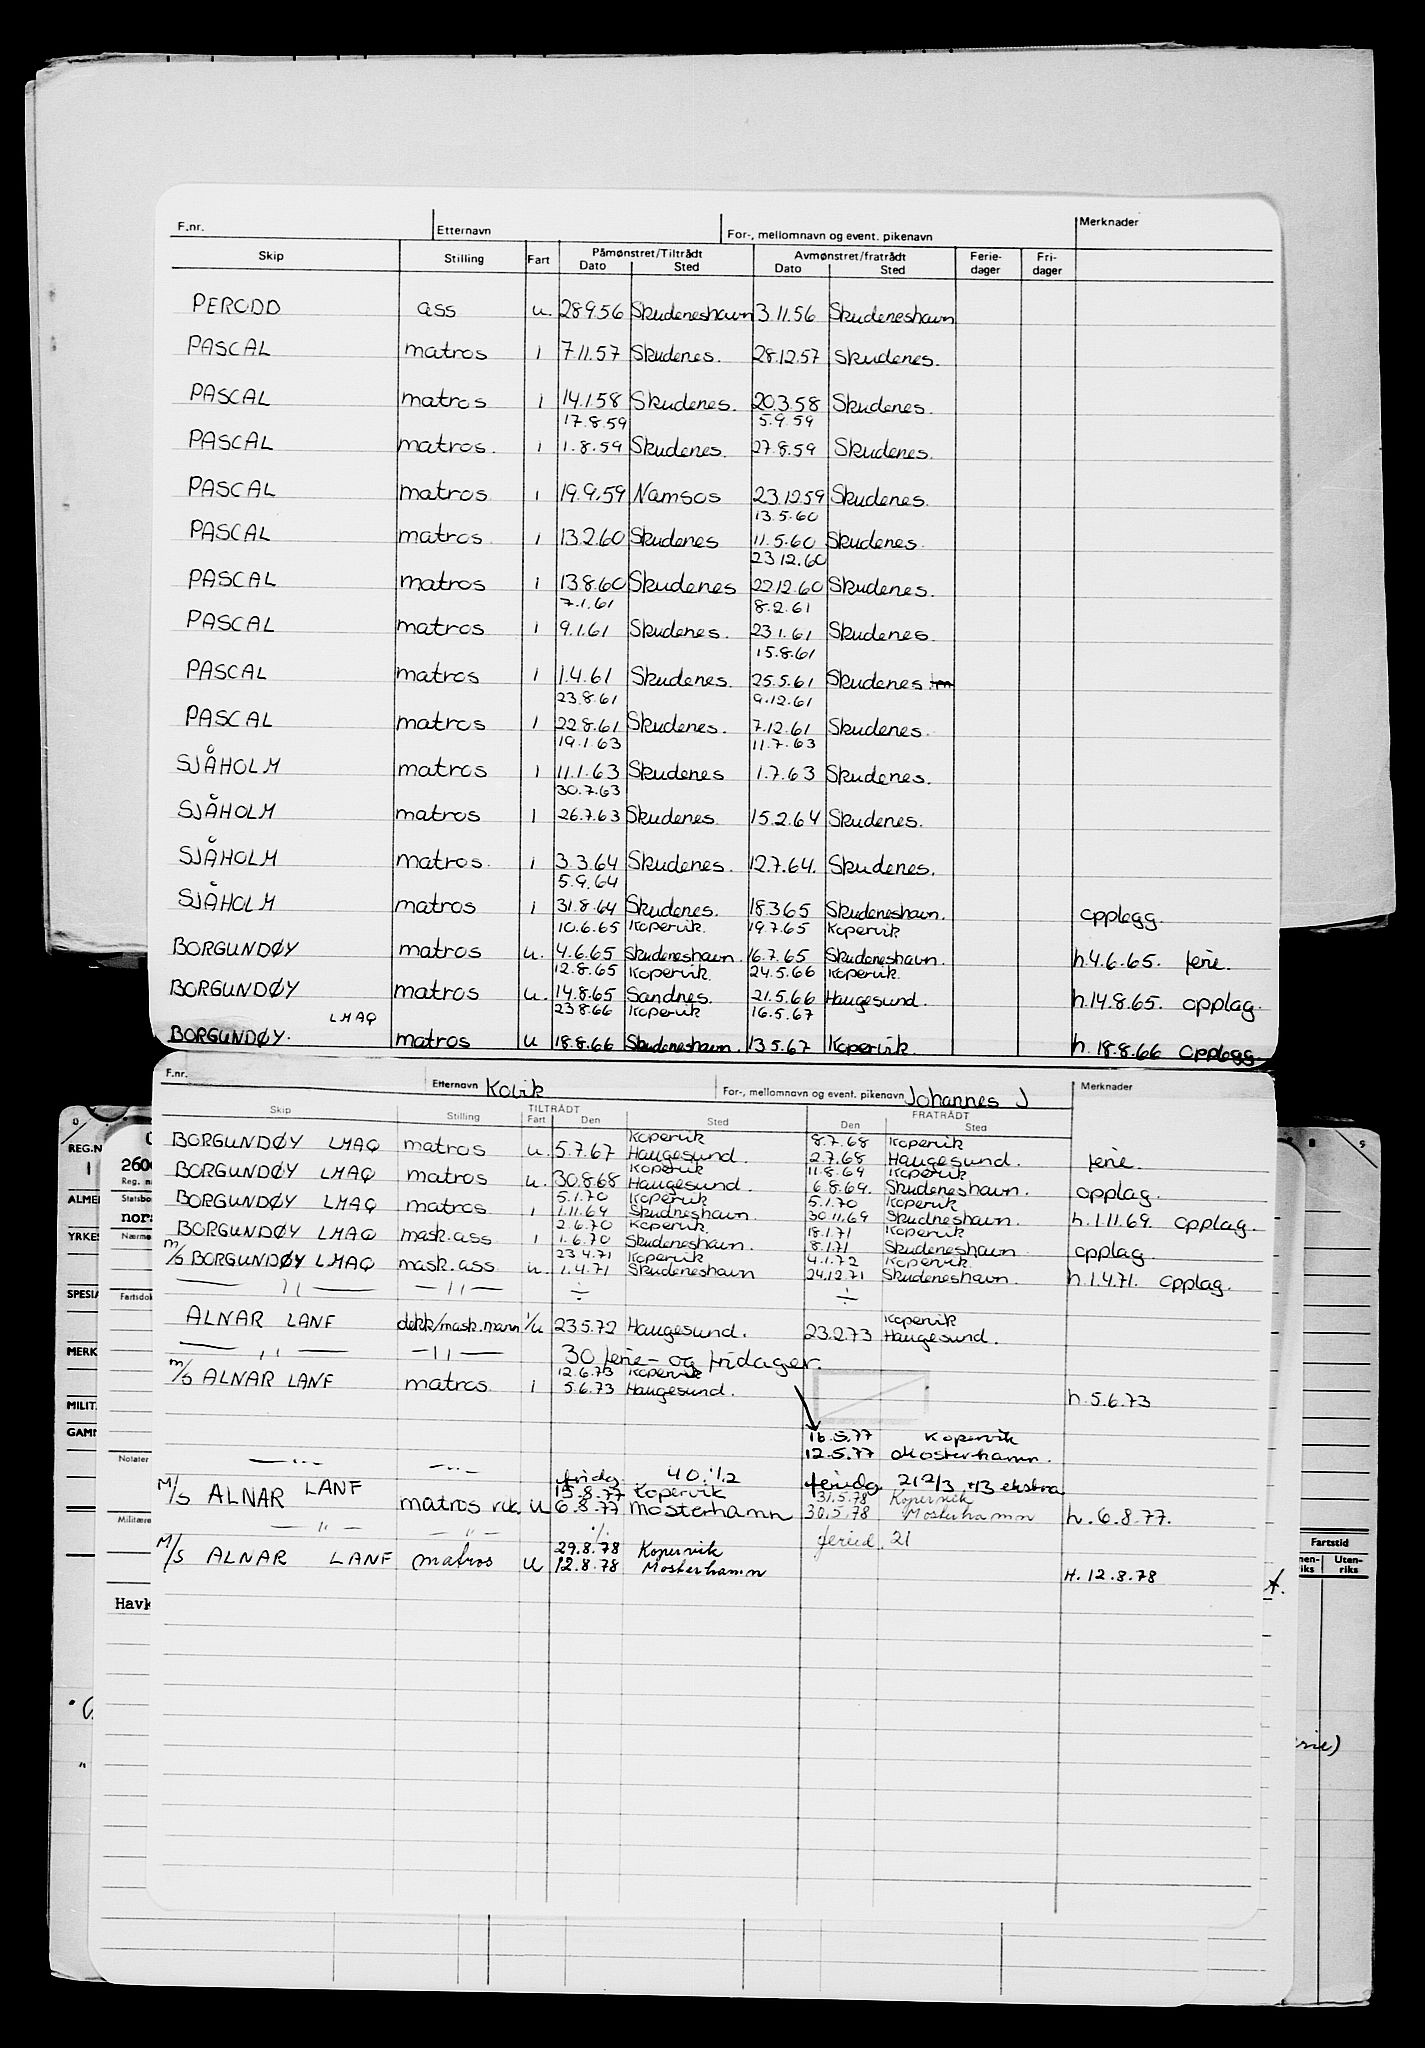 F.nr. Etternavn For-, mellomnavn og event. pikenavn Merknader
Skip Stilling Fart Påmønstret/Tiltrådt Avmønstret/fratrådt Ferie- Fri-
Dato Sted Dato Sted dager dager
PERODD ass u. 28.9.56 Skudeneshavn 3.11.56 Skudeneshavn
PASCAL matros i 7.11.57 Skudenes. 28.12.57 Skudenes.
PASCAL matros i 14.1.58 Skudenes. 20.3.58 Skudenes.
17.8.59 5.9.59
PASCAL matros. i 1.8.59 Skudenes. 27.8.59 Skudenes.
PASCAL matros i 19.9.59 Namsos 23.12.59 Skudenes.
13.5.60
PASCAL matros. i 13.2.60 Skudenes 11.5.60 Skudenes.
23.12.60
PASCAL matros i 13.8.60 Skudenes 22.12.60 Skudenes.
7.1.61 8.2.61
PASCAL matros i 9.1.61 Skudenes. 23.1.61 Skudenes.
15.8.61
PASCAL matros i 1.4.61 Skudenes. 25.5.61 Skudenes.
23.8.61 9.12.61
PASCAL matros i 22.8.61 Skudenes. 7.12.61 Skudenes.
19.1.63 11.7.63
SJÅHOLM matros i 11.1.63 Skudenes 1.7.63 Skudenes.
30.7.63
SJÅHOLM matros i 26.7.63 Skudenes. 15.2.64 Skudenes.
SJÅHOLM matros. i 3.3.64 Skudenes. 12.7.64. Skudenes.
5.9.64
SJÅHOLM matros i 31.8.64 Skudenes. 18.3.65 Skudeneshavn. opplegg.
10.6.65 Kopervik. 19.7.65 Kopervik
BORGUNDØY matros u. 4.6.65 Skudeneshavn. 16.7.65 Skudeneshavn. h.4.6.65. ferie.
12.8.65 Kopervik. 24.5.66 Kopervik.
BORGUNDØY matros u. 14.8.65 Sandnes. 21.5.66 Haugesund. h.14.8.65. opplag.
LMAQ 23.8.66 Kopervik 16.5.67
BORGUNDØY. matros u 18.8.66 Skudeneshavn. 13.5.67 Kopervik. h. 18.8.66 opplegg.
F.nr. Etternavn Kolvik For-, mellomnavn og event. pikenavn Johannes J Merknader
Skip Stilling TILTRÅDT FRATRÅDT
Fart Den Sted Den Sted
Kopervik 8.7.68 Kopervik
BORGUNDØY LMAQ matros u. 5.7.67 Haugesund. 2.7.68 Haugesund. ferie.
Kopervik 11.8.69 Kopervik
BORGUNDØY LMAQ matros u. 30.8.68 Haugesund. 6.8.69. Skudeneshavn. opplag.
5.1.70 Kopervik 5.1.70 Kopervik
BORGUNDØY LMAQ matros. i 1.11.69 Skudneshavn 30.11.69 Skudneshavn. h.1.11.69. opplag.
2.6.70 Kopervik. 18.1.71 Kopervik
BORGUNDØY LMAQ mask.ass i 1.6.70 Skudeneshavn. 8.1.71 Skudeneshavn opplag.
23.4.71 Kopervik 4.1.72 Kopervik.
m/s BORGUNDØY LMAQ mask.ass. u. 1.4.71 Skudeneshavn 24.12.71 Skudeneshavn. h.1.4.71. opplag.
— " — — " — ÷ ÷
Kopervik
ALNAR LANF dekk/mask.mann i/u 23.5.72 Haugesund. 23.2.73 Haugesund.
— " — — " — 30 ferie- og fridager.
12.6.73 Kopervik
m/s ALNAR LANF matros. i 5.6.73 Haugesund. h.5.6.73
16.5.77 Kopervik
12.5.77 Mosterhamn.
— " — — " — fridg. 40.1/2 feridg 21 2/3 +13 ekstra
15.8.77 Kopervik 31.5.78 Kopervik
M/S ALNAR LANF matros vik. u 6.8.77 Mosterhamn 30.5.78 Mosterhamn h. 6.8.77.
— " — — " — feried 21
29.8.78 Kopervik
M/S ALNAR LANF matros u 12.8.78 Mosterhamn H. 12.8.78
REG.N
ALMEI
YRKES
SPESIA
MERK
MILIT.
GAMI
Reg. nr
Statsbo
nors
Nærme
Fartsdok
Notater
Militære
Havk
Fartstid
Uten-
riks